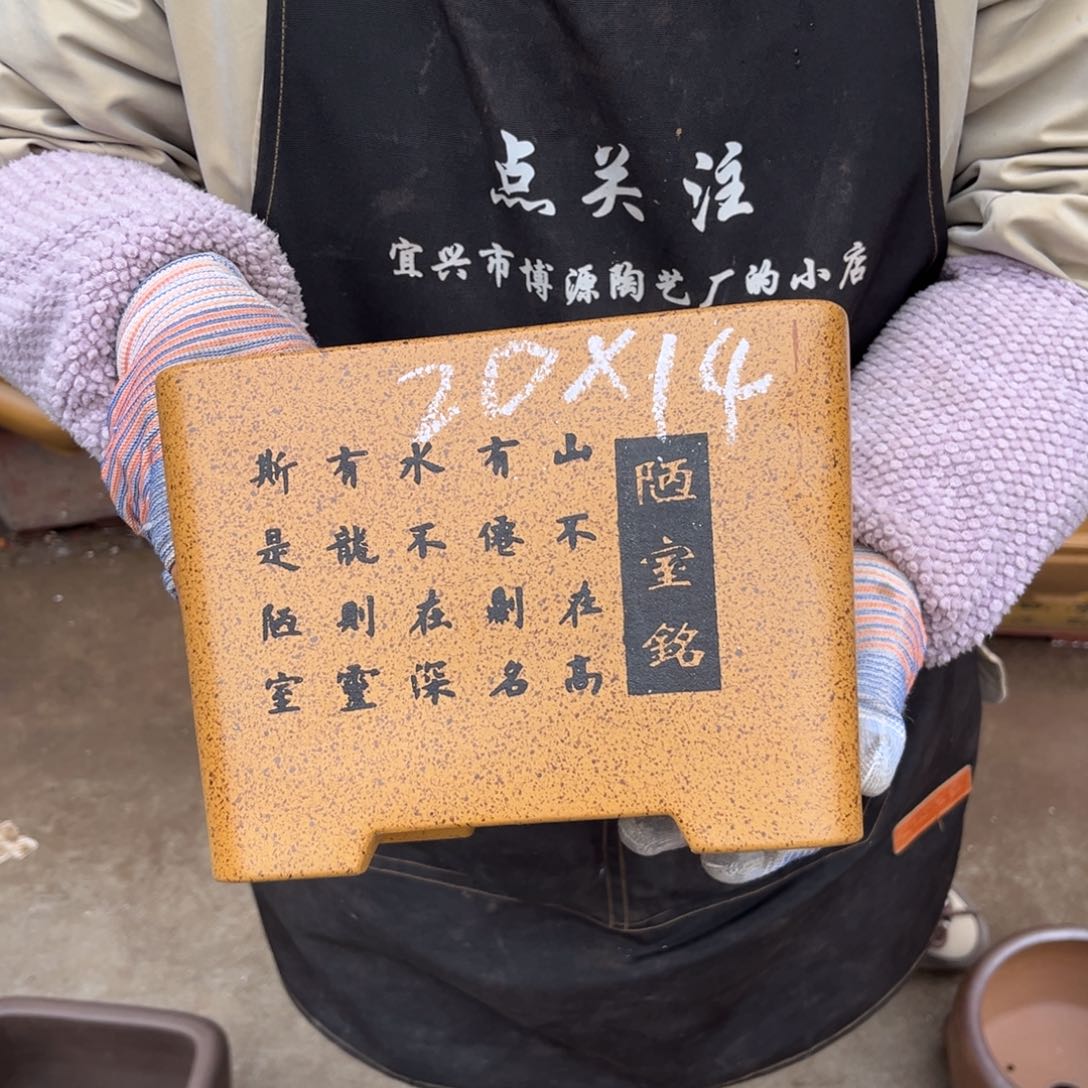 点关注
宜兴市博源陶艺厂的小店
20×14
陋室銘
山不在高
有僊則名
水不在深
有龍則靈
斯是陋室